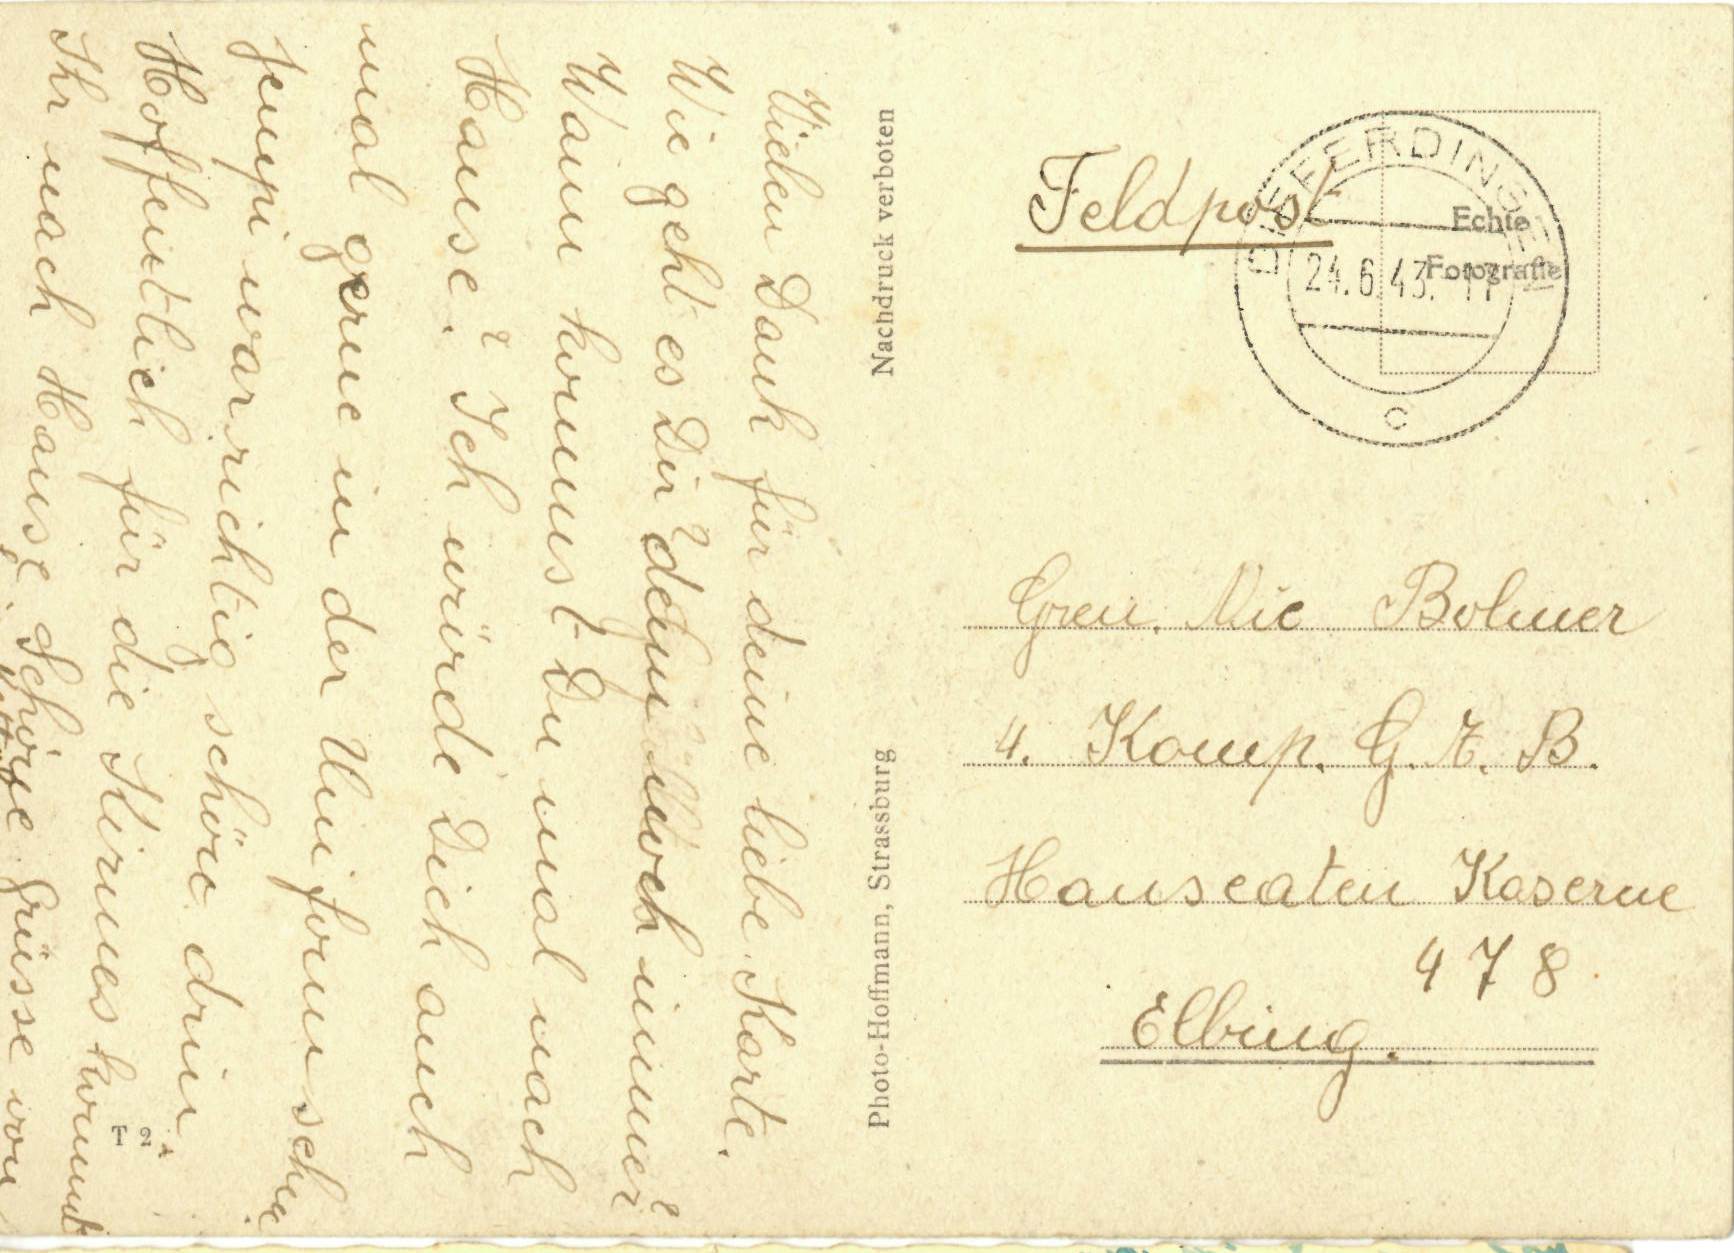 Vielen Dank für deine liebe Karte.
Wie geht es Dir denn noch immer?
Wann kommst Du mal nach
Hause? Ich würde Dich auch
mal gerne in der Uniform sehen
Jempi war richtig schön drin.
Hoffentlich für die Kirmes kommt
Ihr nach Hause. Schöne Grüsse von
Nachdruck verboten
Photo-Hoffmann, Strassburg
T 2
Feldpost
DIFFERDINGEN
24.6.43.-17
c
Echte
Fotografie
Gren. Nic Bolmer
4. Komp. G. A. B.
Hanseaten Kaserne
478
Elbing.